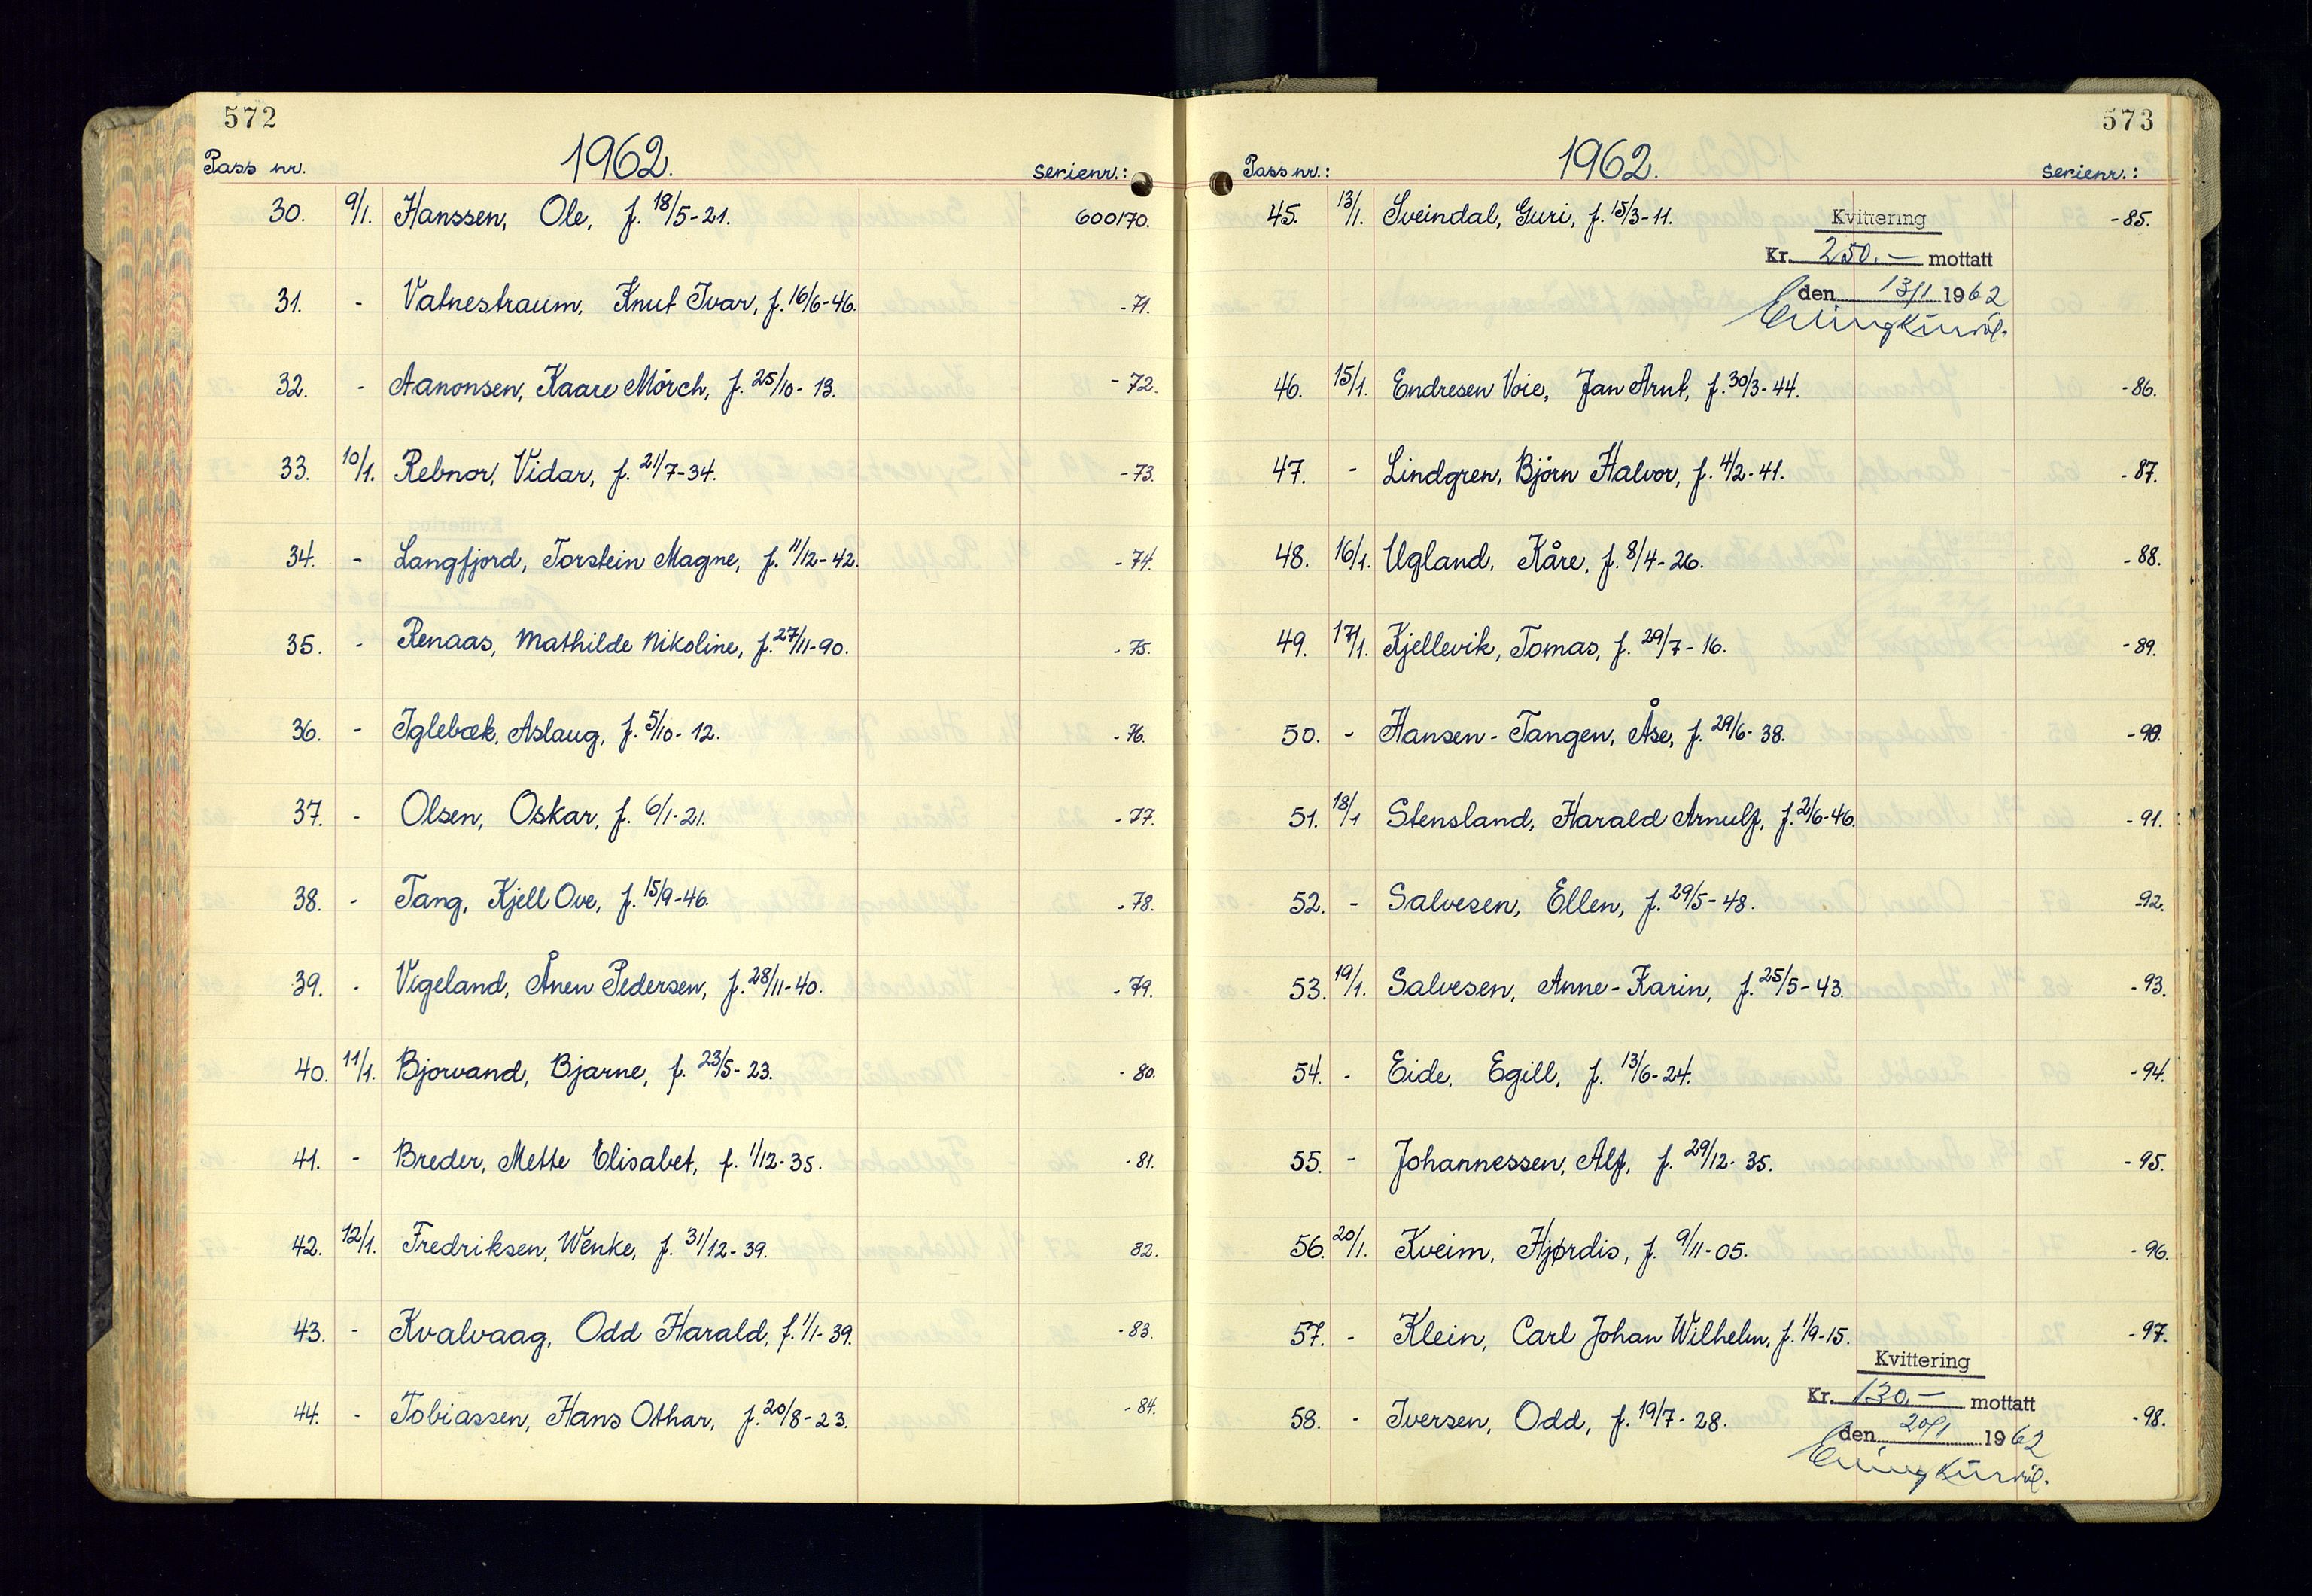 572
1962.
Pass nr. serienr.:
30. 9/1. Hanssen, Ole, f. 18/5-21. 600170.
31. - Vatnestraum, Knut Ivar, f. 16/6-46. -71.
32. - Aanonsen, Kaare Mörch, f. 25/10-13. -72.
33. 10/1. Rebnor, Vidar, f. 21/7-34. -73.
34. - Langfjord, Torstein Magne, f. 11/12-42. -74.
35. - Renaas, Mathilde Nikoline, f. 27/11-90. -75.
36. - Iglebæk, Aslaug, f. 5/10-12. -76.
37. - Olsen, Oskar, f. 6/1-21. -77.
38. - Tang, Kjell Ove, f. 15/9-46. -78.
39. - Vigeland, Ånen Pedersen, f. 28/11-40. -79.
40. 11/1. Bjorvand, Bjarne, f. 23/5-23. -80.
41. - Breder, Mette Elisabet, f. 1/12-35. -81.
42. 12/1. Fredriksen, Wenke, f. 31/12-39. 82.
43. - Kvalvaag, Odd Harald, f. 1/1-39. -83.
44. - Tobiassen, Hans Othar, f. 20/8-23. -84.
573
1962.
Pass nr.: serienr.:
45. 13/1. Sveindal, Guri, f. 15/3-11. -85.
Kvittering
Kr. 250.- mottatt
den 13/1 1962
46. 15/1. Endresen Voie, Jan Arnt, f. 30/3-44. -86.
47. - Lindgren, Björn Halvor, f. 4/2-41. -87.
48. 16/1. Ugland, Kåre, f. 8/4-26. -88.
49. 17/1. Kjellevik, Tomas, f. 29/7-16. -89.
50. - Hansen-Tangen, Åse, f. 29/6-38. -90.
51. 18/1 Stensland, Harald Arnulf, f. 2/6-46. -91.
52. - Salvesen, Ellen, f. 29/5-48. -92.
53. 19/1. Salvesen, Anne-Karin, f. 25/5-43. -93.
54. - Eide, Egill, f. 13/6-24. -94.
55. - Johannessen, Alf, f. 29/12-35. -95.
56. 20/1. Kveim, Hjørdis, f. 9/11-05. -96.
57. - Klein, Carl Johan Wilhelm, f. 1/9-15. -97.
Kvittering
Kr. 130,- mottatt
58. - Iversen, Odd, f. 19/7-28. -98.
den 20/1 1962